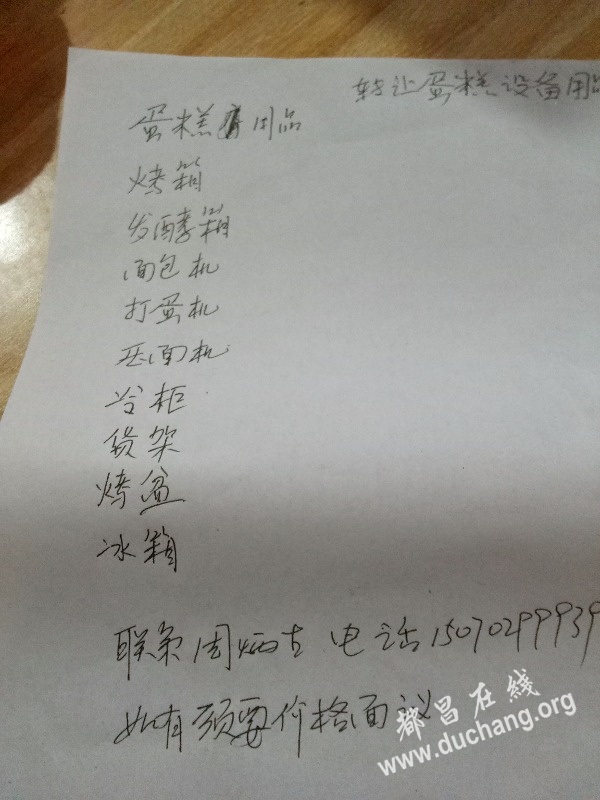 转让蛋糕设备用品
蛋糕用品
烤箱
发酵箱
面包机
打蛋机
压面机
冷柜
货架
烤盆
冰箱
联系周炳 电话15070299939
如有须要价格面议
都昌在線
www.duchang.org